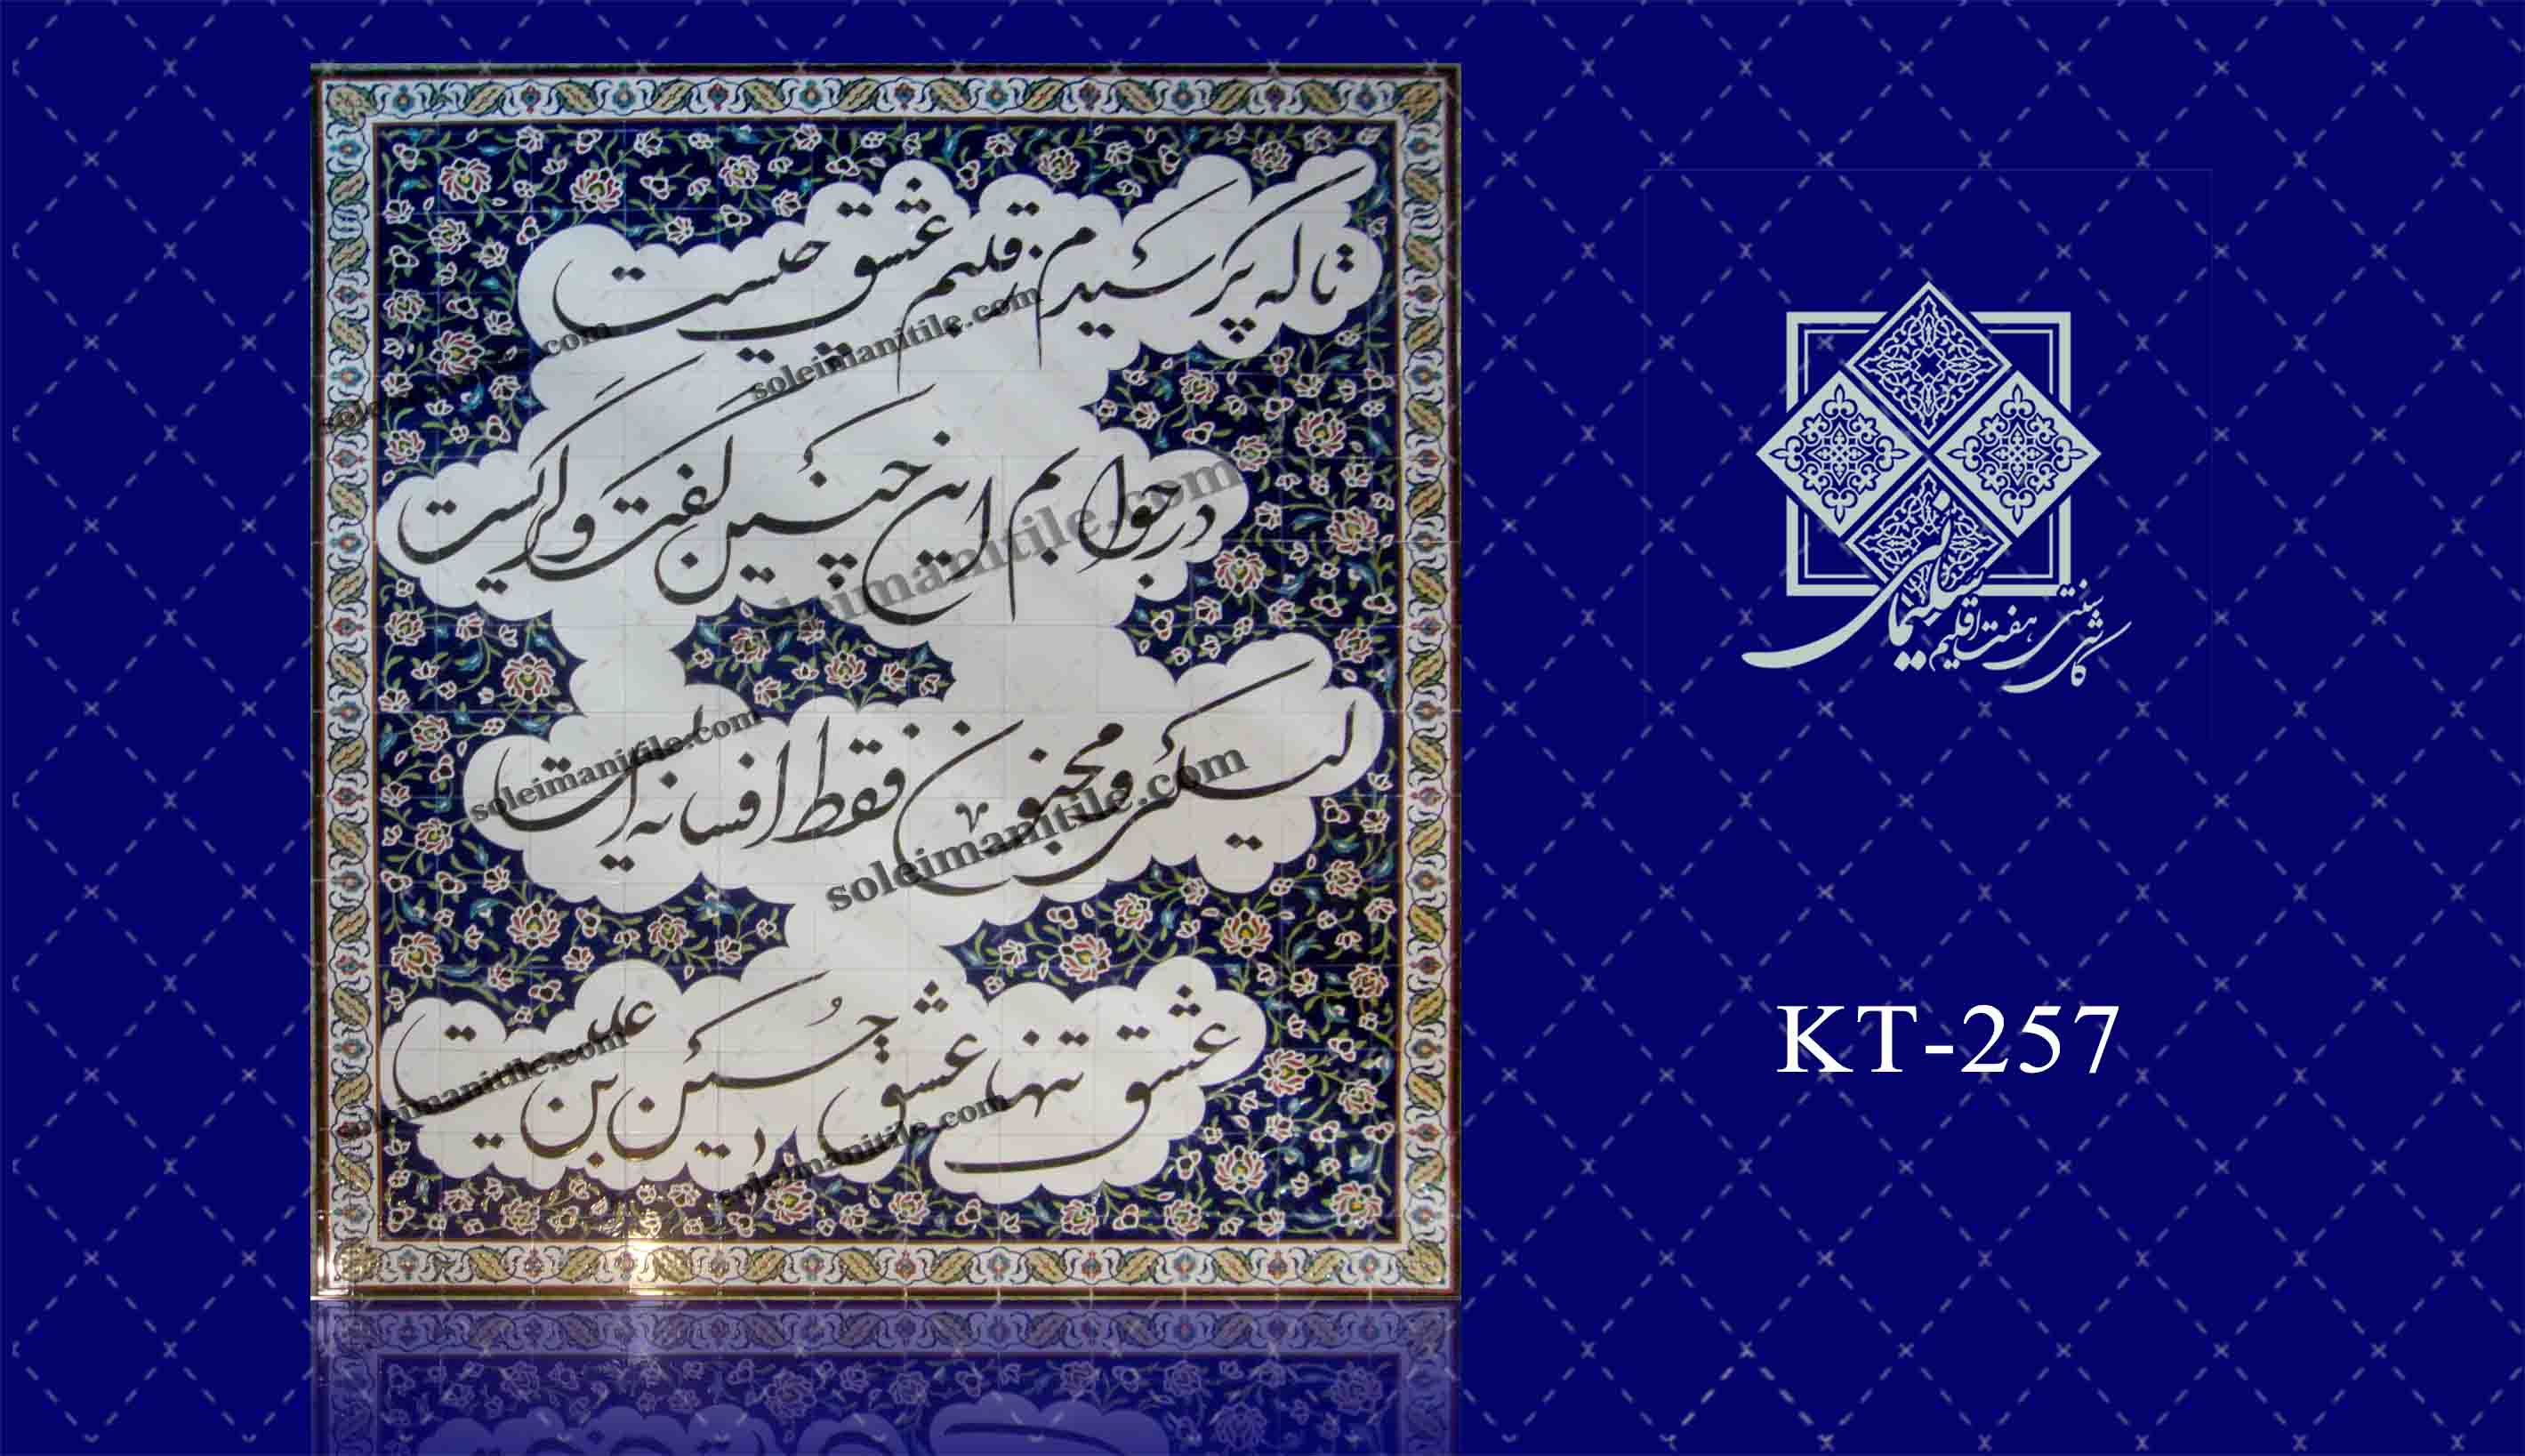 تا که پرسیدم ز قلبم عشق چیست
در جوابم این چنین گفت و گریست
لیلی و مجنون فقط افسانه است
عشق تنها عشق حسین بن علیست
soleimanitile.com
soleimanitile.com
soleimanitile.com
soleimanitile.com
soleimanitile.com
soleimanitile.com
soleimanitile.com
کاشی سنتی هفت اقلیم
سلیمانی
KT-257